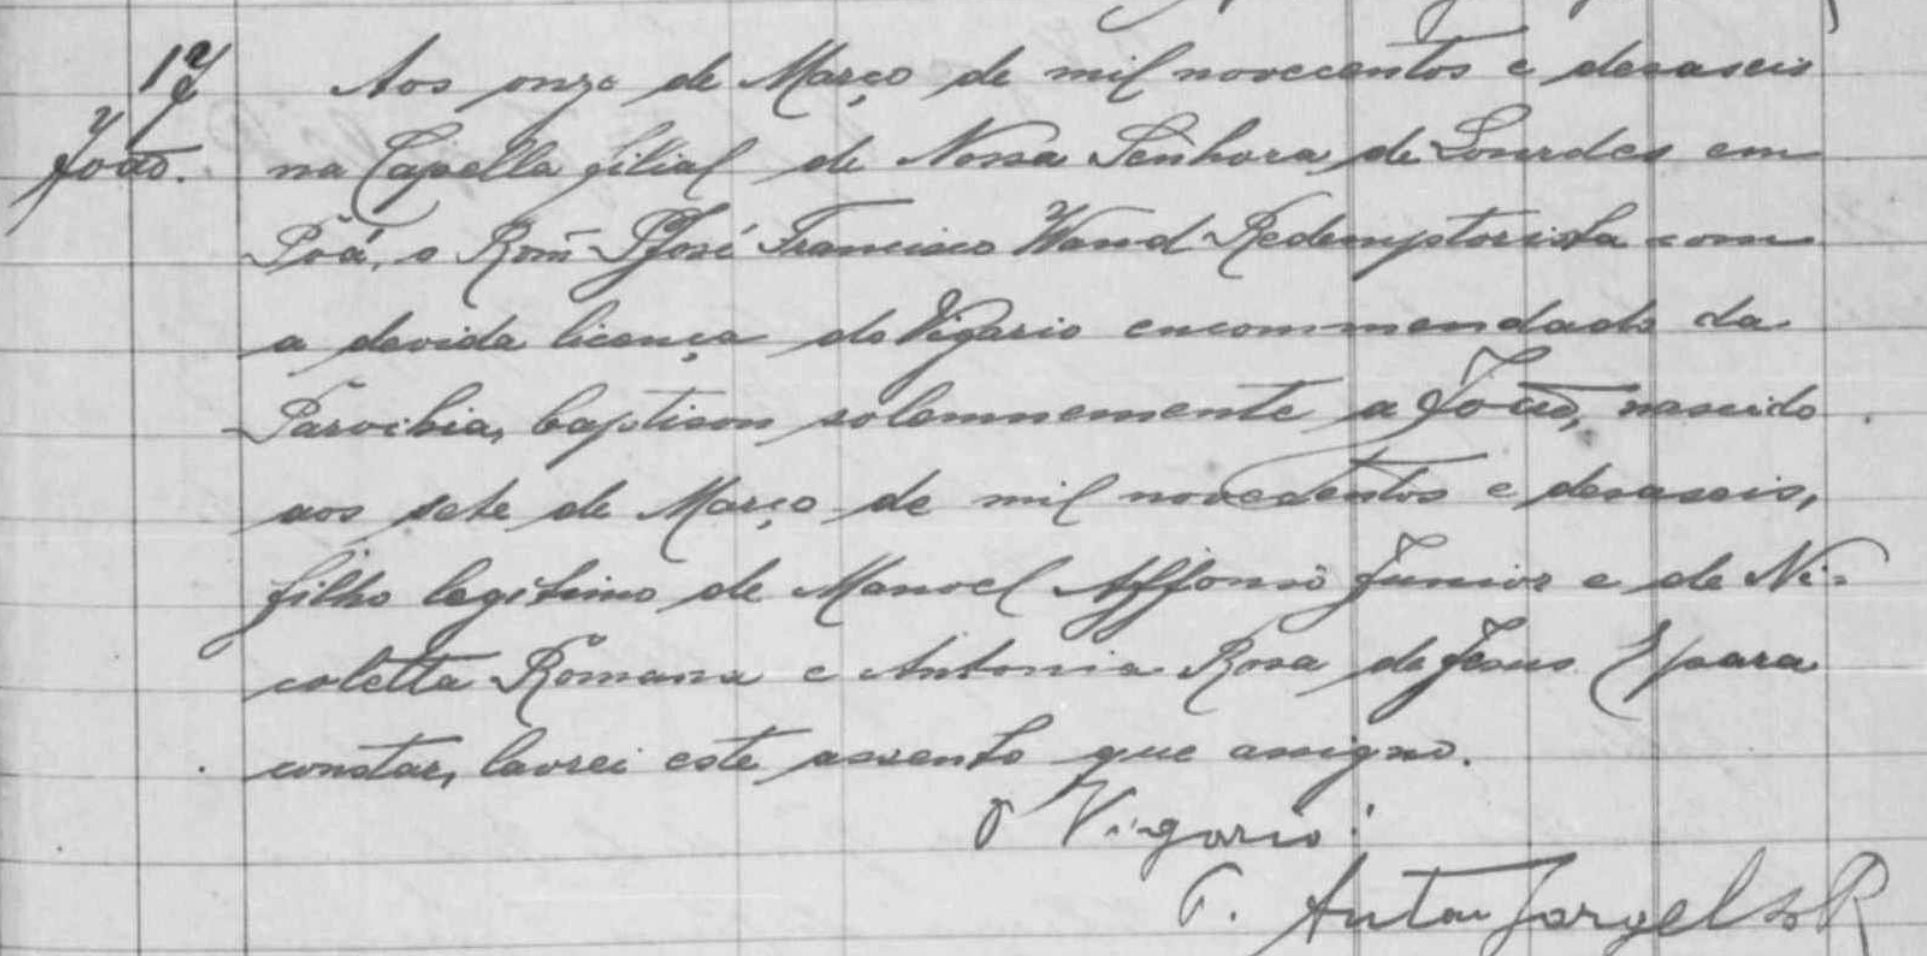 17
João.
Aos onze de Março de mil novecentos e desaseis
na Capella filial de Nossa Senhora de Lourdes em
Poá, o Rom̃ P José Francisco Wand Redemptorista com
a devida licença do Vigario encommendado da
Parochia, baptisou solemnemente a João, nascido
aos sete de Março de mil novecentos e desaseis,
filho legitimo de Manoel Affonso Junior e de Ni=
coletta Romana e Antonia Rosa de Jesus E para
constar, lavrei este assento que assigno.
O Vigario:
P. Antão Jorge